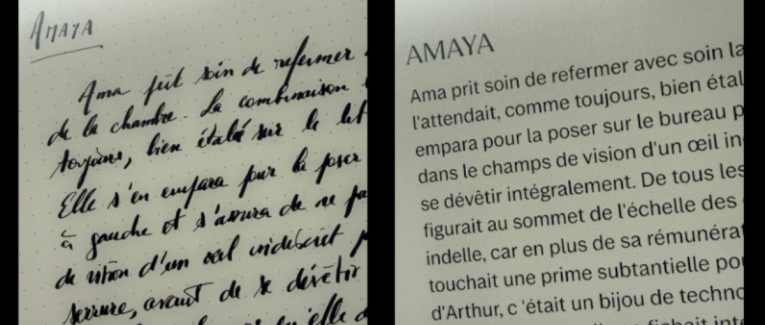 AMAYA
Ama prit soin de refermer
de la chambre. La combinaison
toujours, bien étalée sur le lit
Elle s'en empara pour la poser
à gauche et s'assura de ne pa
de vision d'un œil indiscret
serrure, avant de se dévêtir
AMAYA
Ama prit soin de refermer avec soin la
l'attendait, comme toujours, bien étal
empara pour la poser sur le bureau p
dans le champs de vision d'un œil in
se dévêtir intégralement. De tous les
figurait au sommet de l'échelle des
indelle, car en plus de sa rémunéra
touchait une prime subtantielle po
d'Arthur, c 'était un bijou de techno